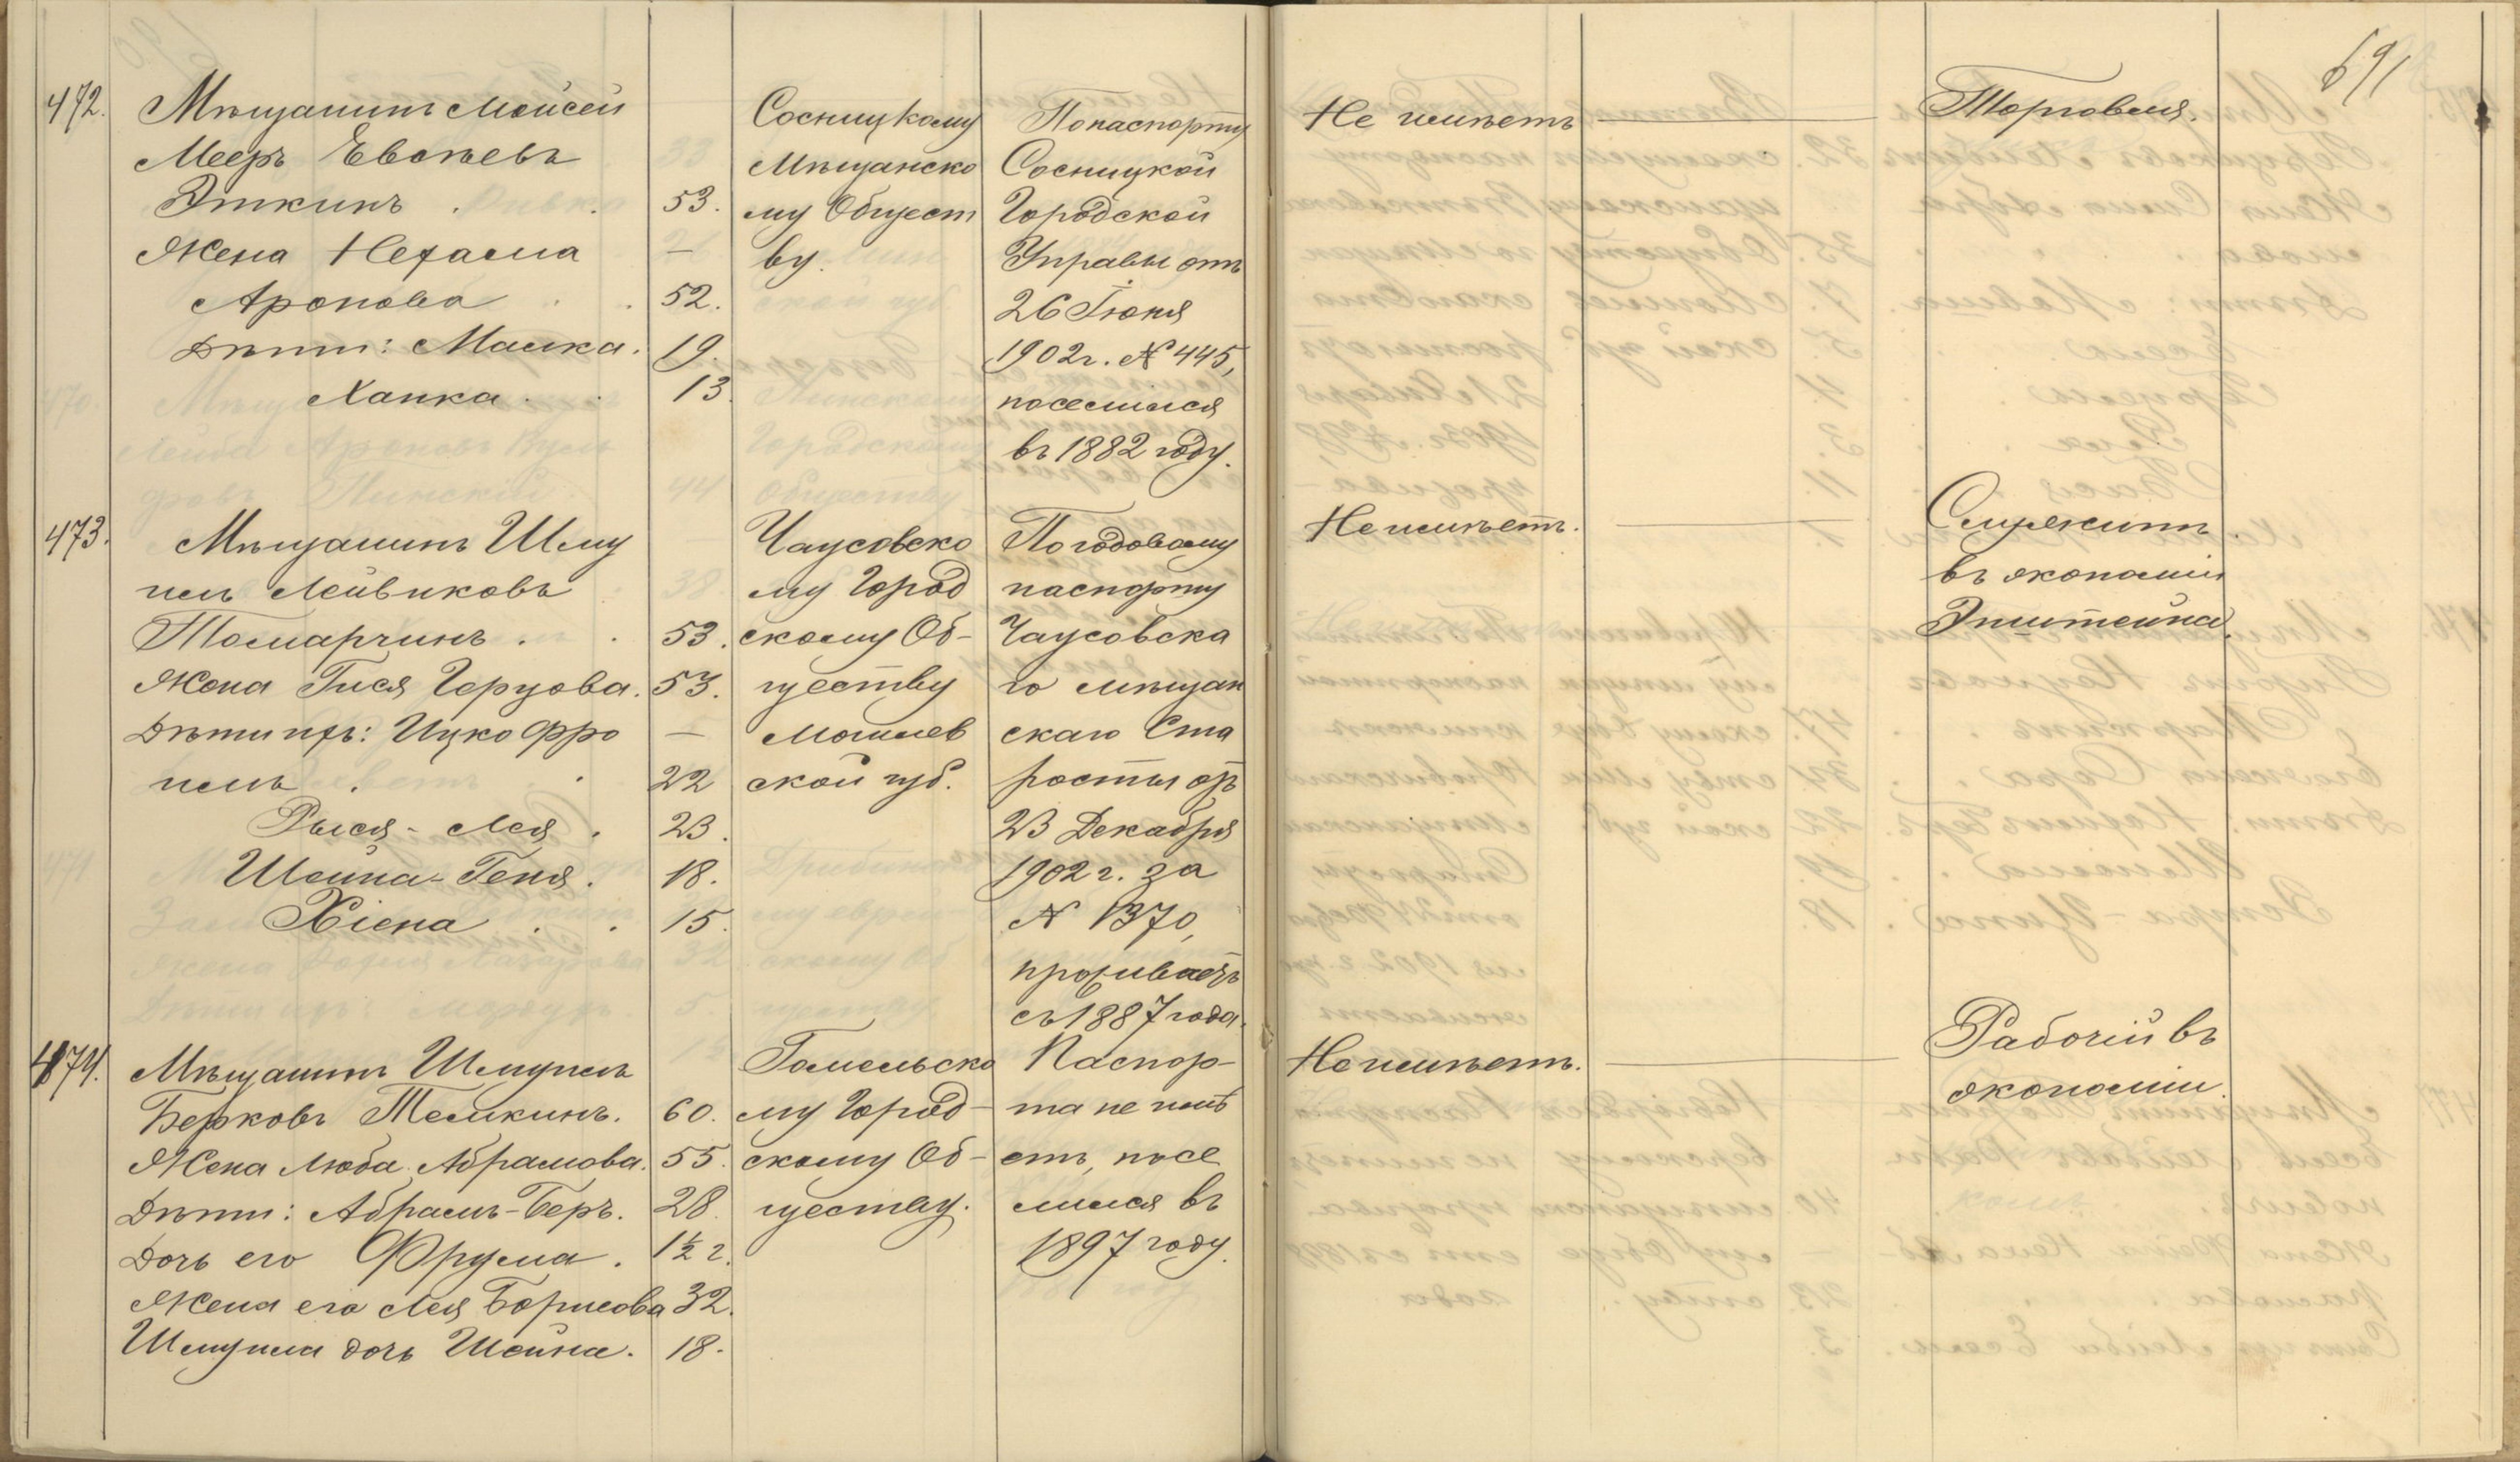 691
472.
Мѣщанинъ Мойсей
Мееръ Евсѣевъ
Эткинъ . . 53.
Жена Нехама —
Аронова . . 52.
Дѣти: Малка. 19.
Ханка . . 13.
Сосницкому
Мѣщанско
му Общест
ву.
По паспорту
Сосницкой
Городской
Управы отъ
26 Іюня
1902 г. № 445,
поселился
въ 1882 году.
Не имѣетъ
Торговля.
473.
Мѣщанинъ Шму
илъ Лейвиковъ
Томарчинъ . . 53.
Жена Гися Герцова. 53.
Дѣти ихъ: Ицко Фро —
имъ . . 22
Рыся - Лея . 23.
Шейна - Геня . 18.
Хіена . . 15.
Чаусовско
му Город
скому Об-
ществу
Могилев
ской губ.
По годовому
паспорту
Чаусовска
го мѣщан
скаго Ста
росты отъ
23 Декабря
1902 г. за
№ 1370,
проживаетъ
съ 1887 года.
Не имѣетъ.
Служитъ
въ экономіи
Эпштейна.
474.
Мѣщанинъ Шмуилъ
Берковъ Темкинъ. 60.
Жена Люба Абрамова. 55.
Дѣти: Абрамъ-Беръ. 28.
Дочь его Фрума . 1½ г.
Жена его Лея Борисова 32.
Шмуила дочь Шейна. 18.
Гомельско
му Город-
скому Об-
ществу.
Паспор-
та не имѣ
етъ, посе
лился въ
1897 году.
Не имѣетъ.
Рабочій въ
экономіи.